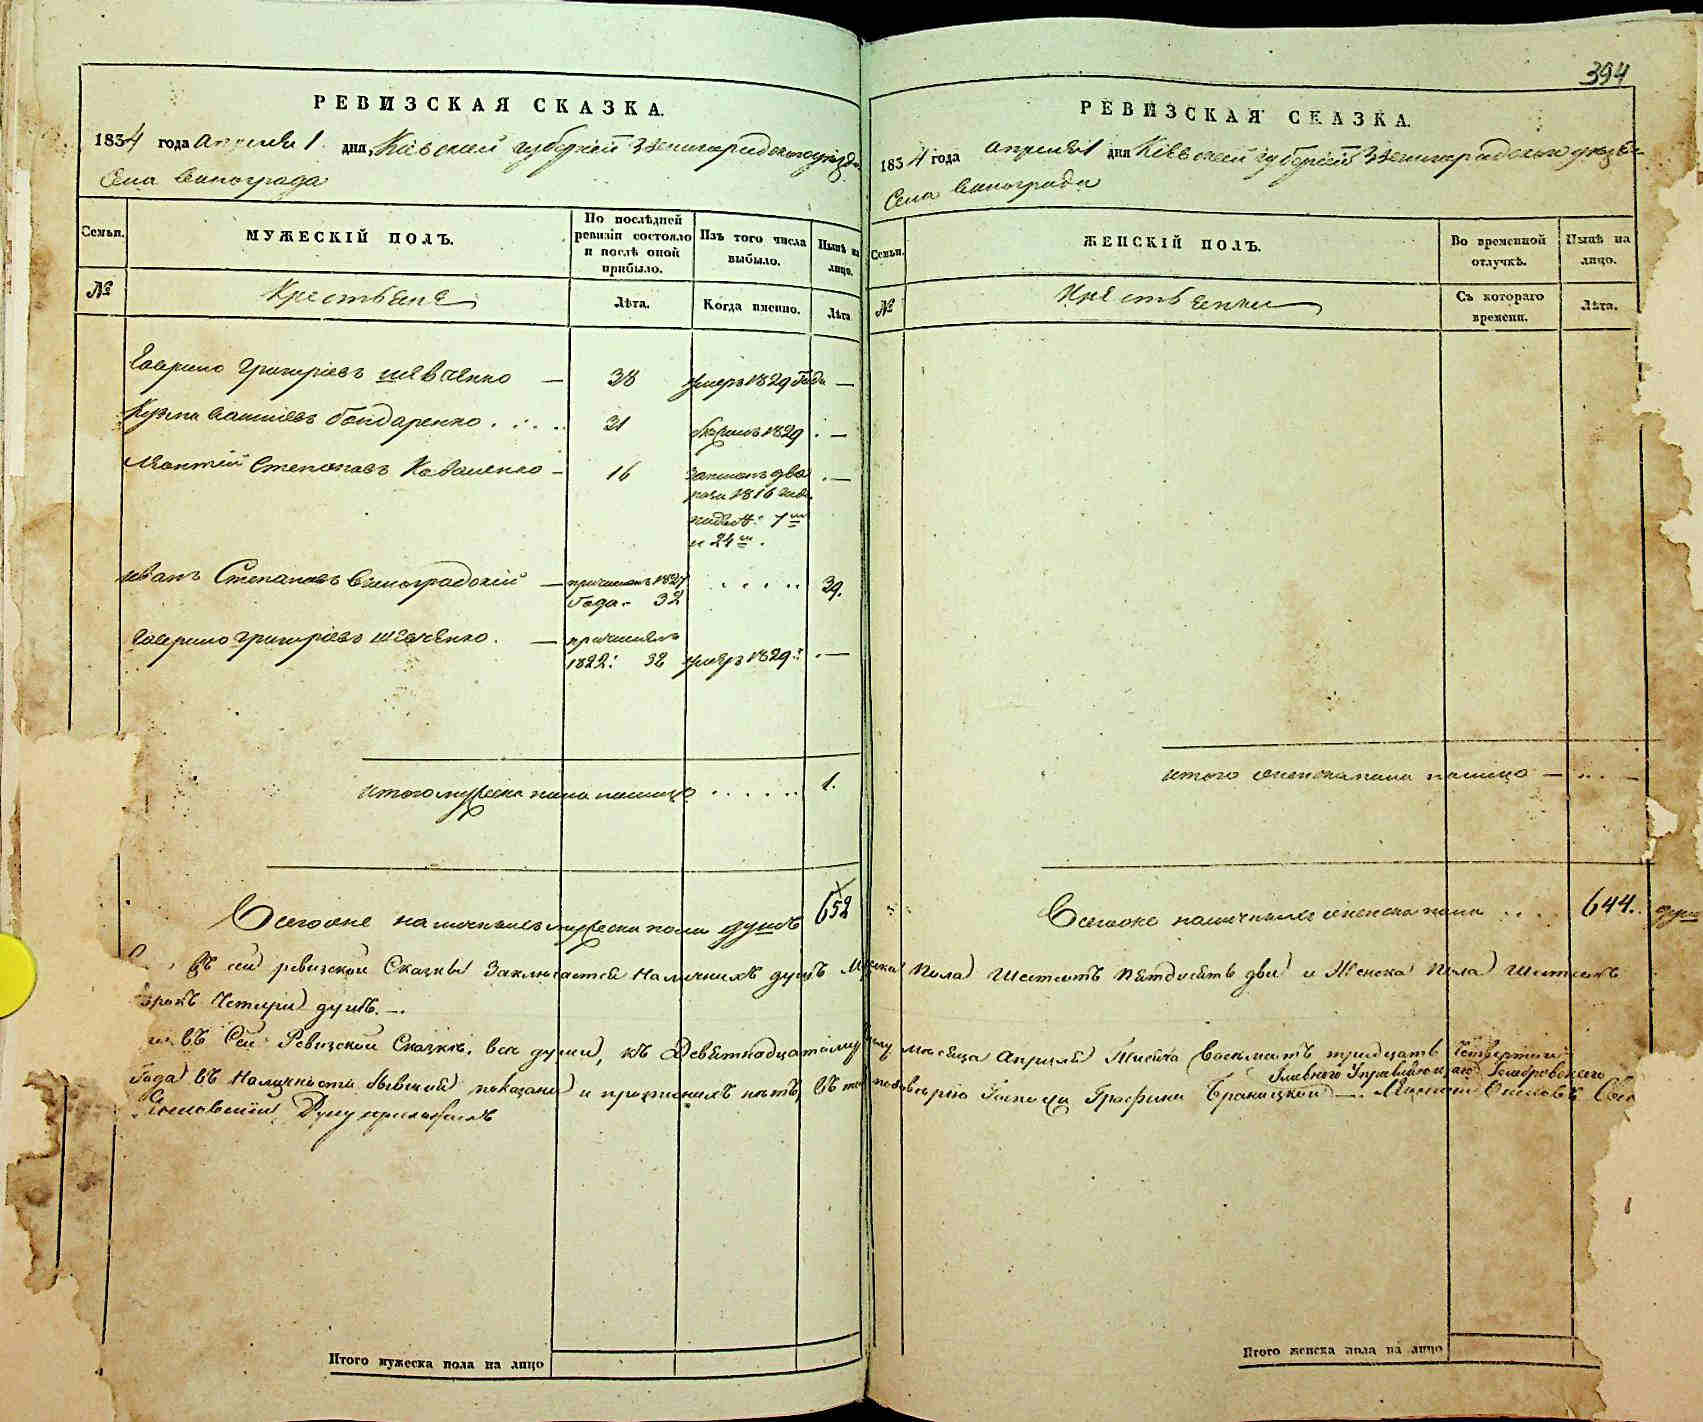 394
РЕВИЗСКАЯ СКАЗКА.
1834 года апреля 1 дня Кіевской губерніи Звенигородского уезда
Села Винограда
Семьи.
МУЖЕСКІЙ ПОЛЪ.
По послѣдней ревизіи состояло и послѣ оной прибыло.
Изъ того числа выбыло.
Нынѣ на лицо.
№
Крестьяне
Лѣта.
Когда именно.
Лѣта
Гаврило Григоріевъ Шевченко — 38 умеръ 1829 Года —
Кузма Бондаренко . . . . 31 1829 . —
Леонтій Степановъ Коваленко — 16 записанъ два . —
раза 1816 года
7
и 24
Иванъ Степановъ Виноградскій — причисленъ 1827 . . . . . 39.
Года. 32
Гаврило Григоріевъ Шевченко. — причисленъ
1822: 32 умеръ 1829: . —
Итого мужеска пола налицо . . . . . . 1.
Всего оне наличныхъ мужеска пола душъ 652
Итого мужеска пола на лицо
РЕВИЗСКАЯ СКАЗКА.
1834 года апреля 1 дня Кіевской губерніи Звенигородского уезда
Села Винограда
Семьи.
ЖЕНСКІЙ ПОЛЪ.
Во временной отлучкѣ.
Нынѣ на лицо.
№
Крестьянки
Съ котораго времени.
Лѣта.
итого женска пола налицо — . . . —
Всего оне наличныхъ женска пола . . . . 644. душъ
въ сей ревизской Сказки Заключается Наличнихъ душъ Мужеска Пола Шестсотъ Пятдесятъ два и Женска Пола Шестсотъ
сорокъ Четыри душъ. —
въ Сей Ревизской Сказке, все души, къ Девятнадцатому числу месяца Апреля Тисяча Восемсотъ тридцать Четвертого
Года въ Наличности бывший показани и прописнихъ нетъ, въ томъ по доверию Госпожи Графини Браницкой —. Главного Управляющаго
Руку приложилъ
Итого женска пола на лицо